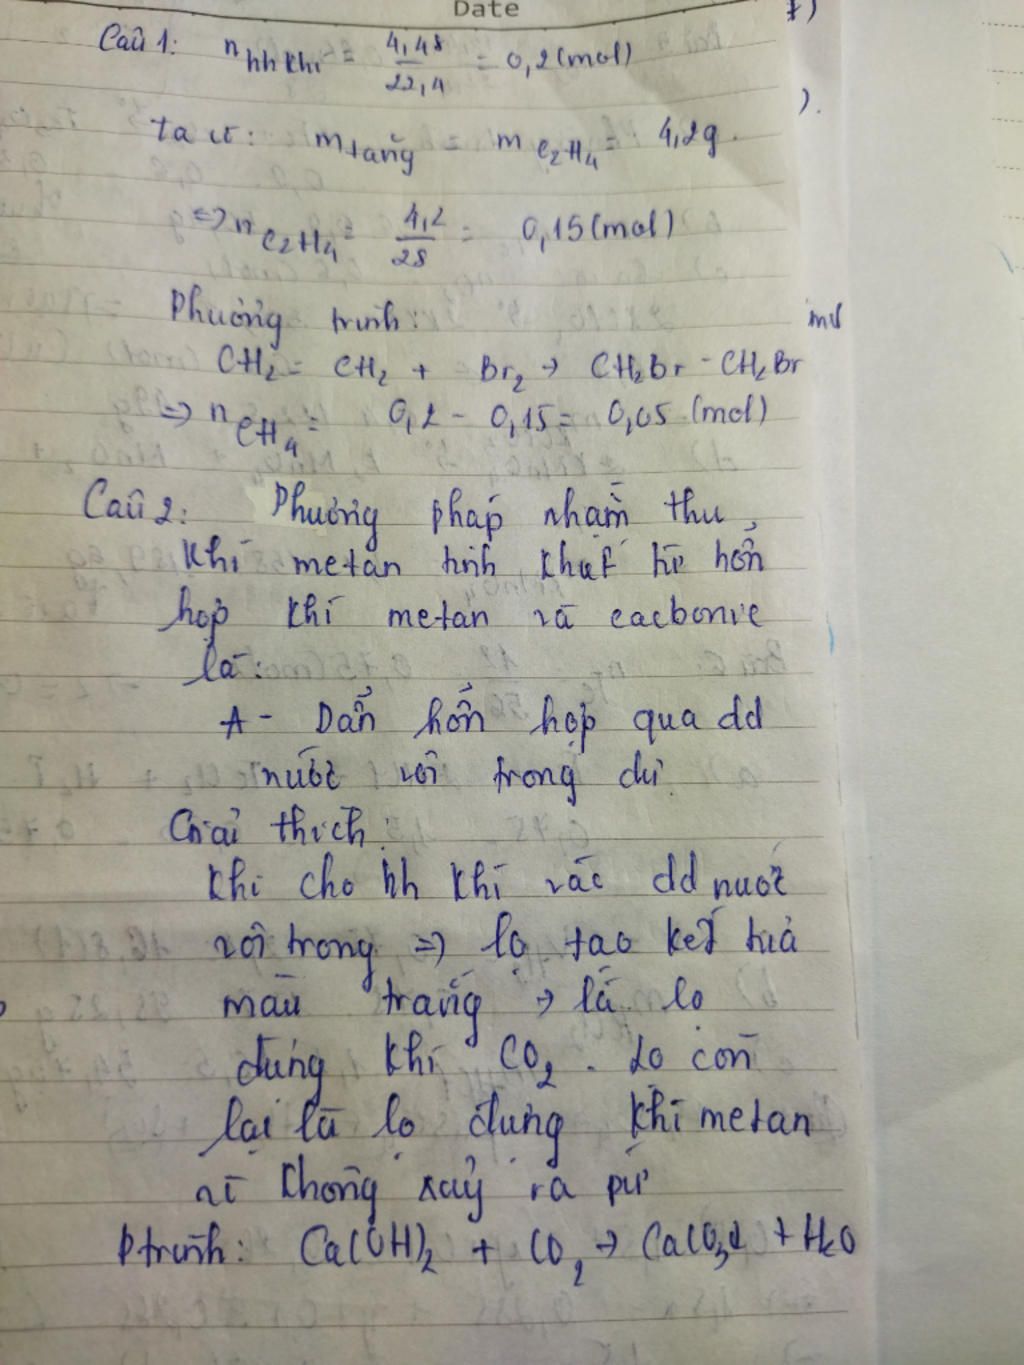 Date
Câu 1: n hh khí = 4,48/22,4 = 0,2 (mol)
ta có: m tăng = m C2H4 = 4,2g.
=> n C2H4 = 4,2/28 = 0,15 (mol)
Phương trình:
CH2 = CH2 + Br2 → CH2Br - CH2Br
=> n CH4 = 0,2 - 0,15 = 0,05 (mol)
Câu 2: Phương pháp nhằm thu
khí metan tinh khiết từ hỗn
hợp khí metan và cacbonic
là:
A - Dẫn hỗn hợp qua dd
nước vôi trong dư
Giải thích:
Khi cho hh khí vào dd nước
vôi trong => lọ tạo kết tủa
màu trắng → là lọ
đựng khí CO2. Lọ còn
lại là lọ đựng khí metan
vì không xảy ra pứ
Ptrình: Ca(OH)2 + CO2 → CaCO3↓ + H2O